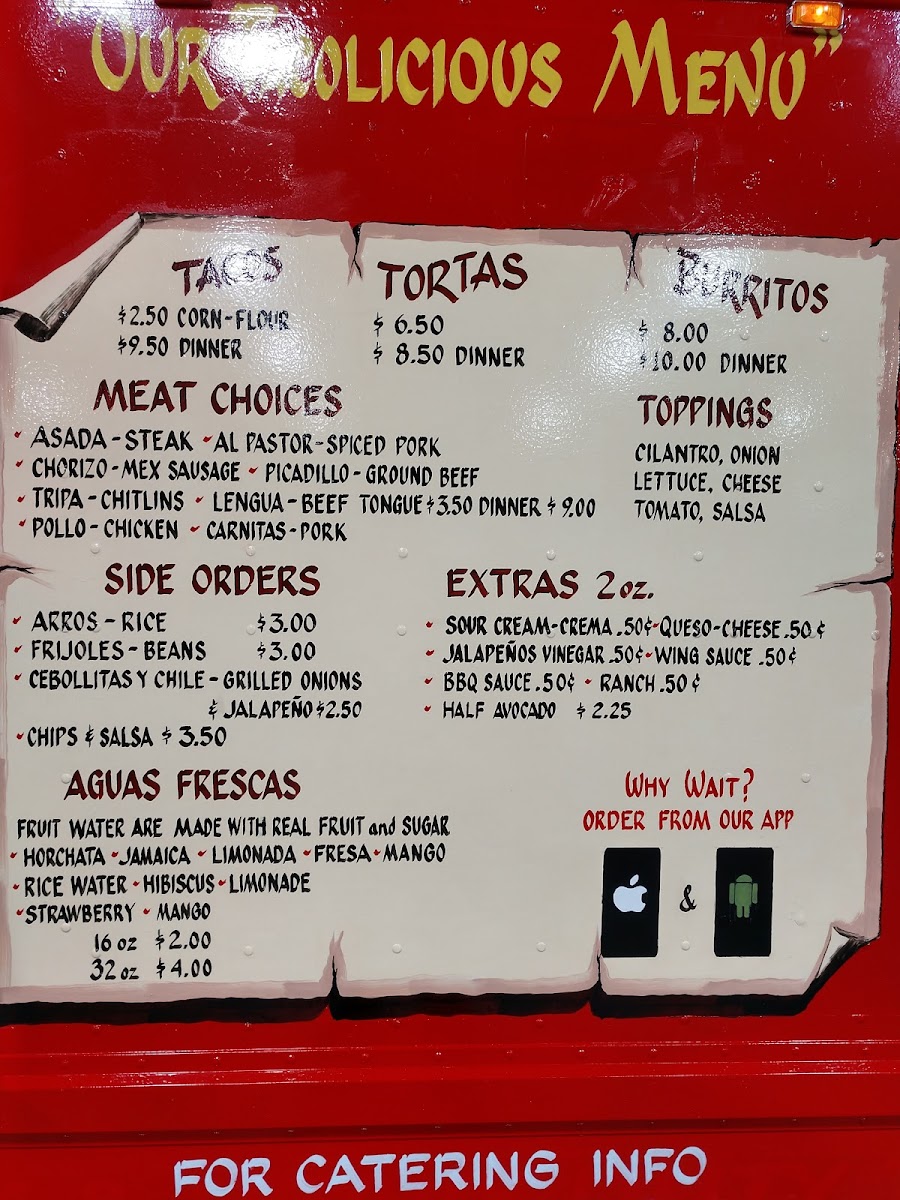 "OUR TACOLICIOUS MENU"
TACOS
$2.50 CORN-FLOUR
$9.50 DINNER
TORTAS
$ 6.50
$ 8.50 DINNER
BURRITOS
$ 8.00
$10.00 DINNER
MEAT CHOICES
• ASADA-STEAK • AL PASTOR-SPICED PORK
• CHORIZO-MEX SAUSAGE • PICADILLO-GROUND BEEF
• TRIPA-CHITLINS • LENGUA-BEEF TONGUE $3.50 DINNER $ 9.00
• POLLO-CHICKEN • CARNITAS-PORK
TOPPINGS
CILANTRO, ONION
LETTUCE, CHEESE
TOMATO, SALSA
SIDE ORDERS
• ARROS-RICE $3.00
• FRIJOLES-BEANS $3.00
• CEBOLLITAS Y CHILE-GRILLED ONIONS
& JALAPEÑO $2.50
• CHIPS & SALSA $ 3.50
EXTRAS 2 oz.
• SOUR CREAM-CREMA .50¢ • QUESO-CHEESE .50 ¢
• JALAPEÑOS VINEGAR .50¢ • WING SAUCE .50¢
• BBQ SAUCE .50¢ • RANCH .50¢
• HALF AVOCADO $ 2.25
AGUAS FRESCAS
FRUIT WATER ARE MADE WITH REAL FRUIT and SUGAR
• HORCHATA • JAMAICA • LIMONADA • FRESA • MANGO
• RICE WATER • HIBISCUS • LIMONADE
• STRAWBERRY • MANGO
16 oz $2.00
32 oz $4.00
WHY WAIT?
ORDER FROM OUR APP
&
FOR CATERING INFO